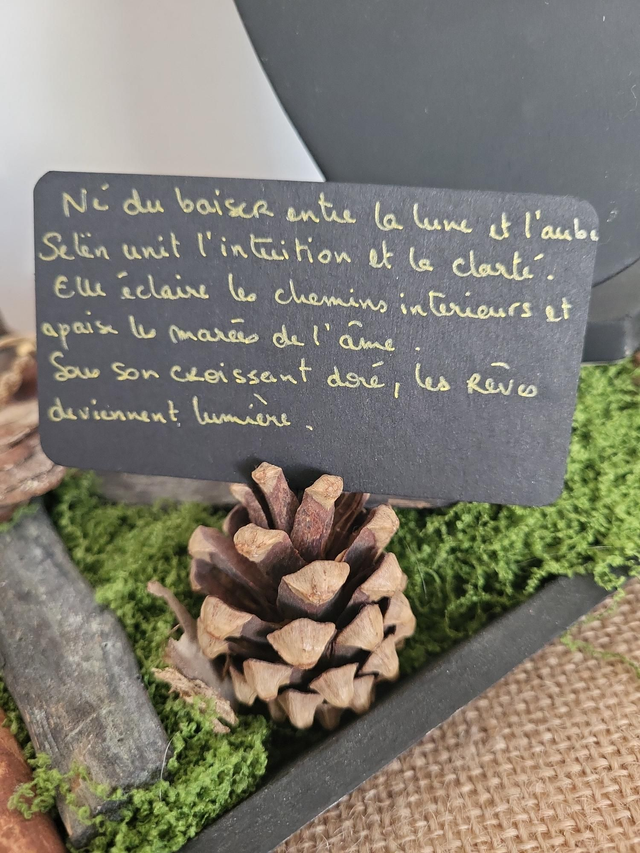 Né du baiser entre la lune et l'aube
Selën unit l'intuition et la clarté.
Elle éclaire les chemins interieurs et
apaise les marées de l'âme.
Sous son croissant doré, les Rêves
deviennent lumière.